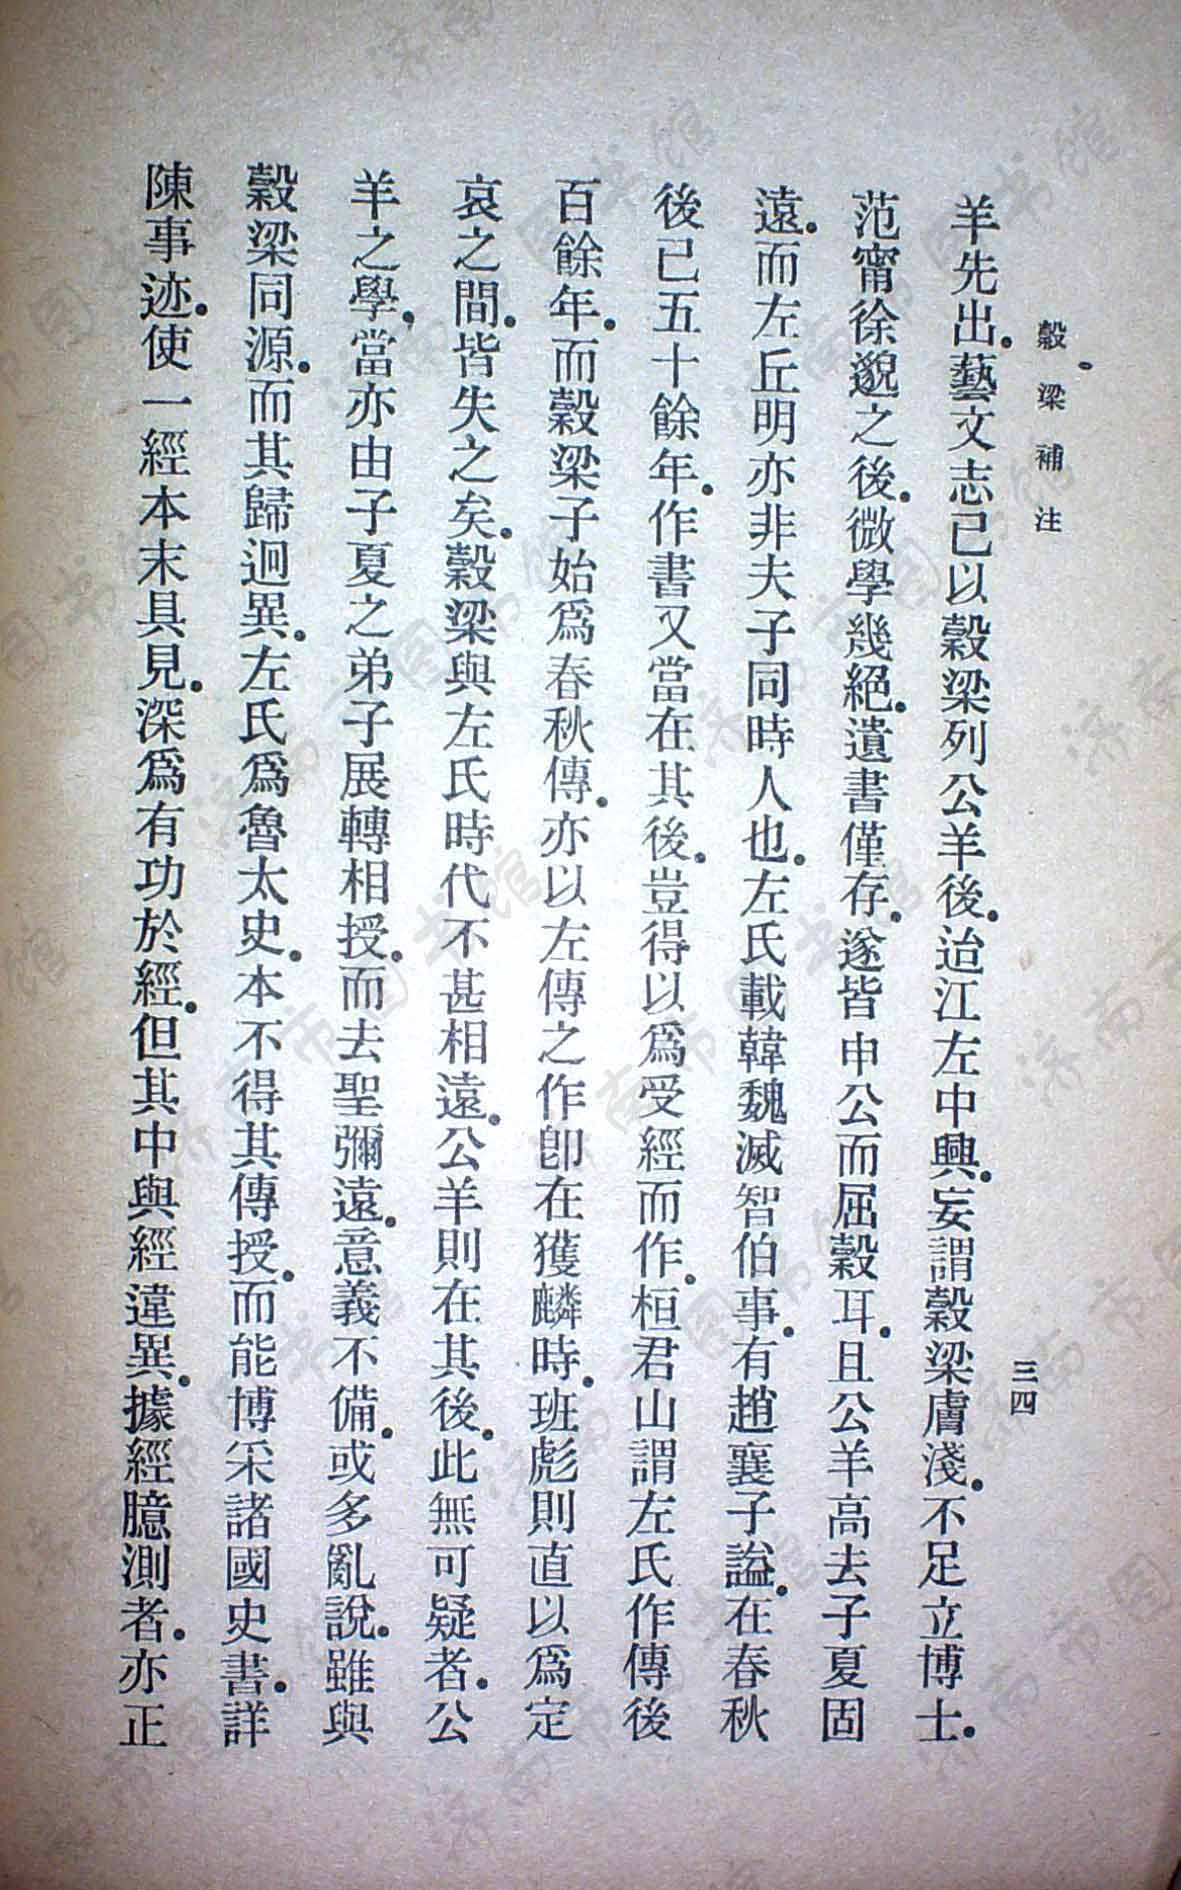 穀梁補注
三四
羊先出。藝文志已以穀梁列公羊後。迨江左中興。妄謂穀梁膚淺。不足立博士。
范甯徐邈之後。微學幾絕。遺書僅存。遂皆申公而屈穀耳。且公羊高去子夏固
遠。而左丘明亦非夫子同時人也。左氏載韓魏滅智伯事。有趙襄子謚。在春秋
後已五十餘年。作書又當在其後。豈得以爲受經而作。桓君山謂左氏作傳後
百餘年。而穀梁子始爲春秋傳。亦以左傳之作卽在獲麟時。班彪則直以爲定
哀之間。皆失之矣。穀梁與左氏時代不甚相遠。公羊則在其後。此無可疑者。公
羊之學。當亦由子夏之弟子展轉相授。而去聖彌遠。意義不備。或多亂說。雖與
穀梁同源。而其歸迥異。左氏爲魯太史。本不得其傳授。而能博采諸國史書。詳
陳事迹。使一經本末具見。深爲有功於經。但其中與經違異。據經臆測者。亦正
濟南市图书馆